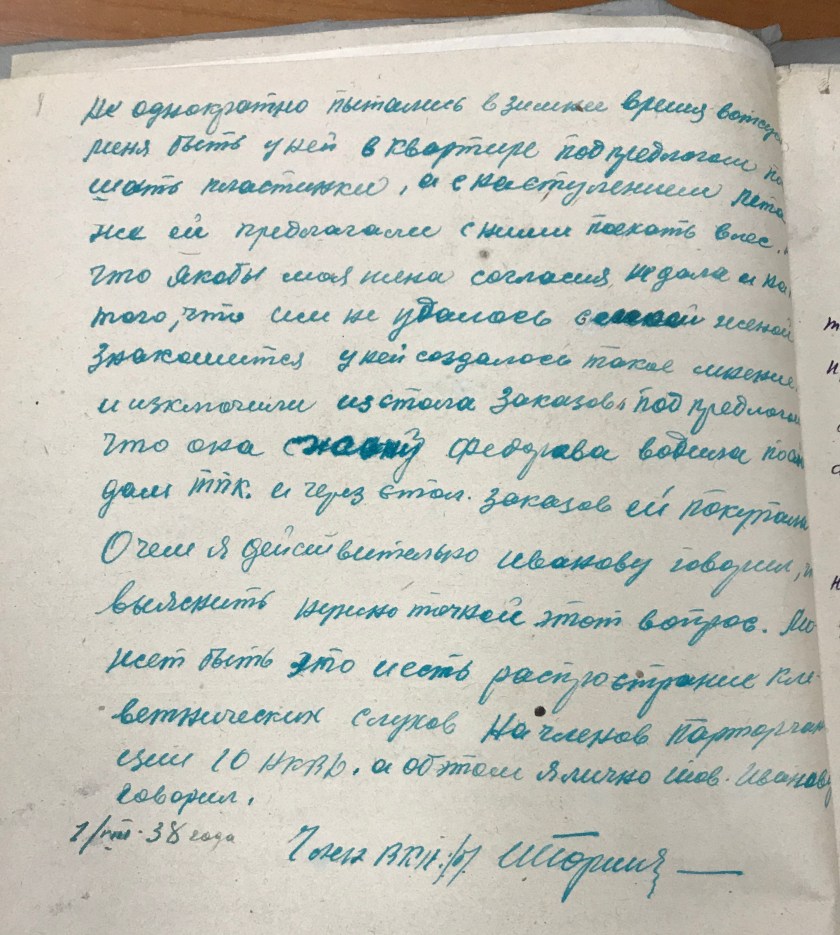 не однократно пытались в зимнее время
меня быть у ней в квартире под предлогом по
шать пластинки, а с наступлением лета
же ей предлагали с ними поехать в лес.
что якобы моя жена согласия не дала и
того, что им не удалось с моей женой
знакомится у ней создалось такое мнение
и изключили из стола заказов, под предлогом
что она Федорова водила
дам ТПК. и через стол. заказов ей покупали
О чем я действительно Иванову говорил,
выяснить нужно точкой этот вопрос. Мо
жет быть это и есть распространие кле-
ветнических слухов на членов парторган
ции ГО НКВД. а об этом я лично тов. Иванову
говорил.
1/VIII-38 года
Член ВКП/б/